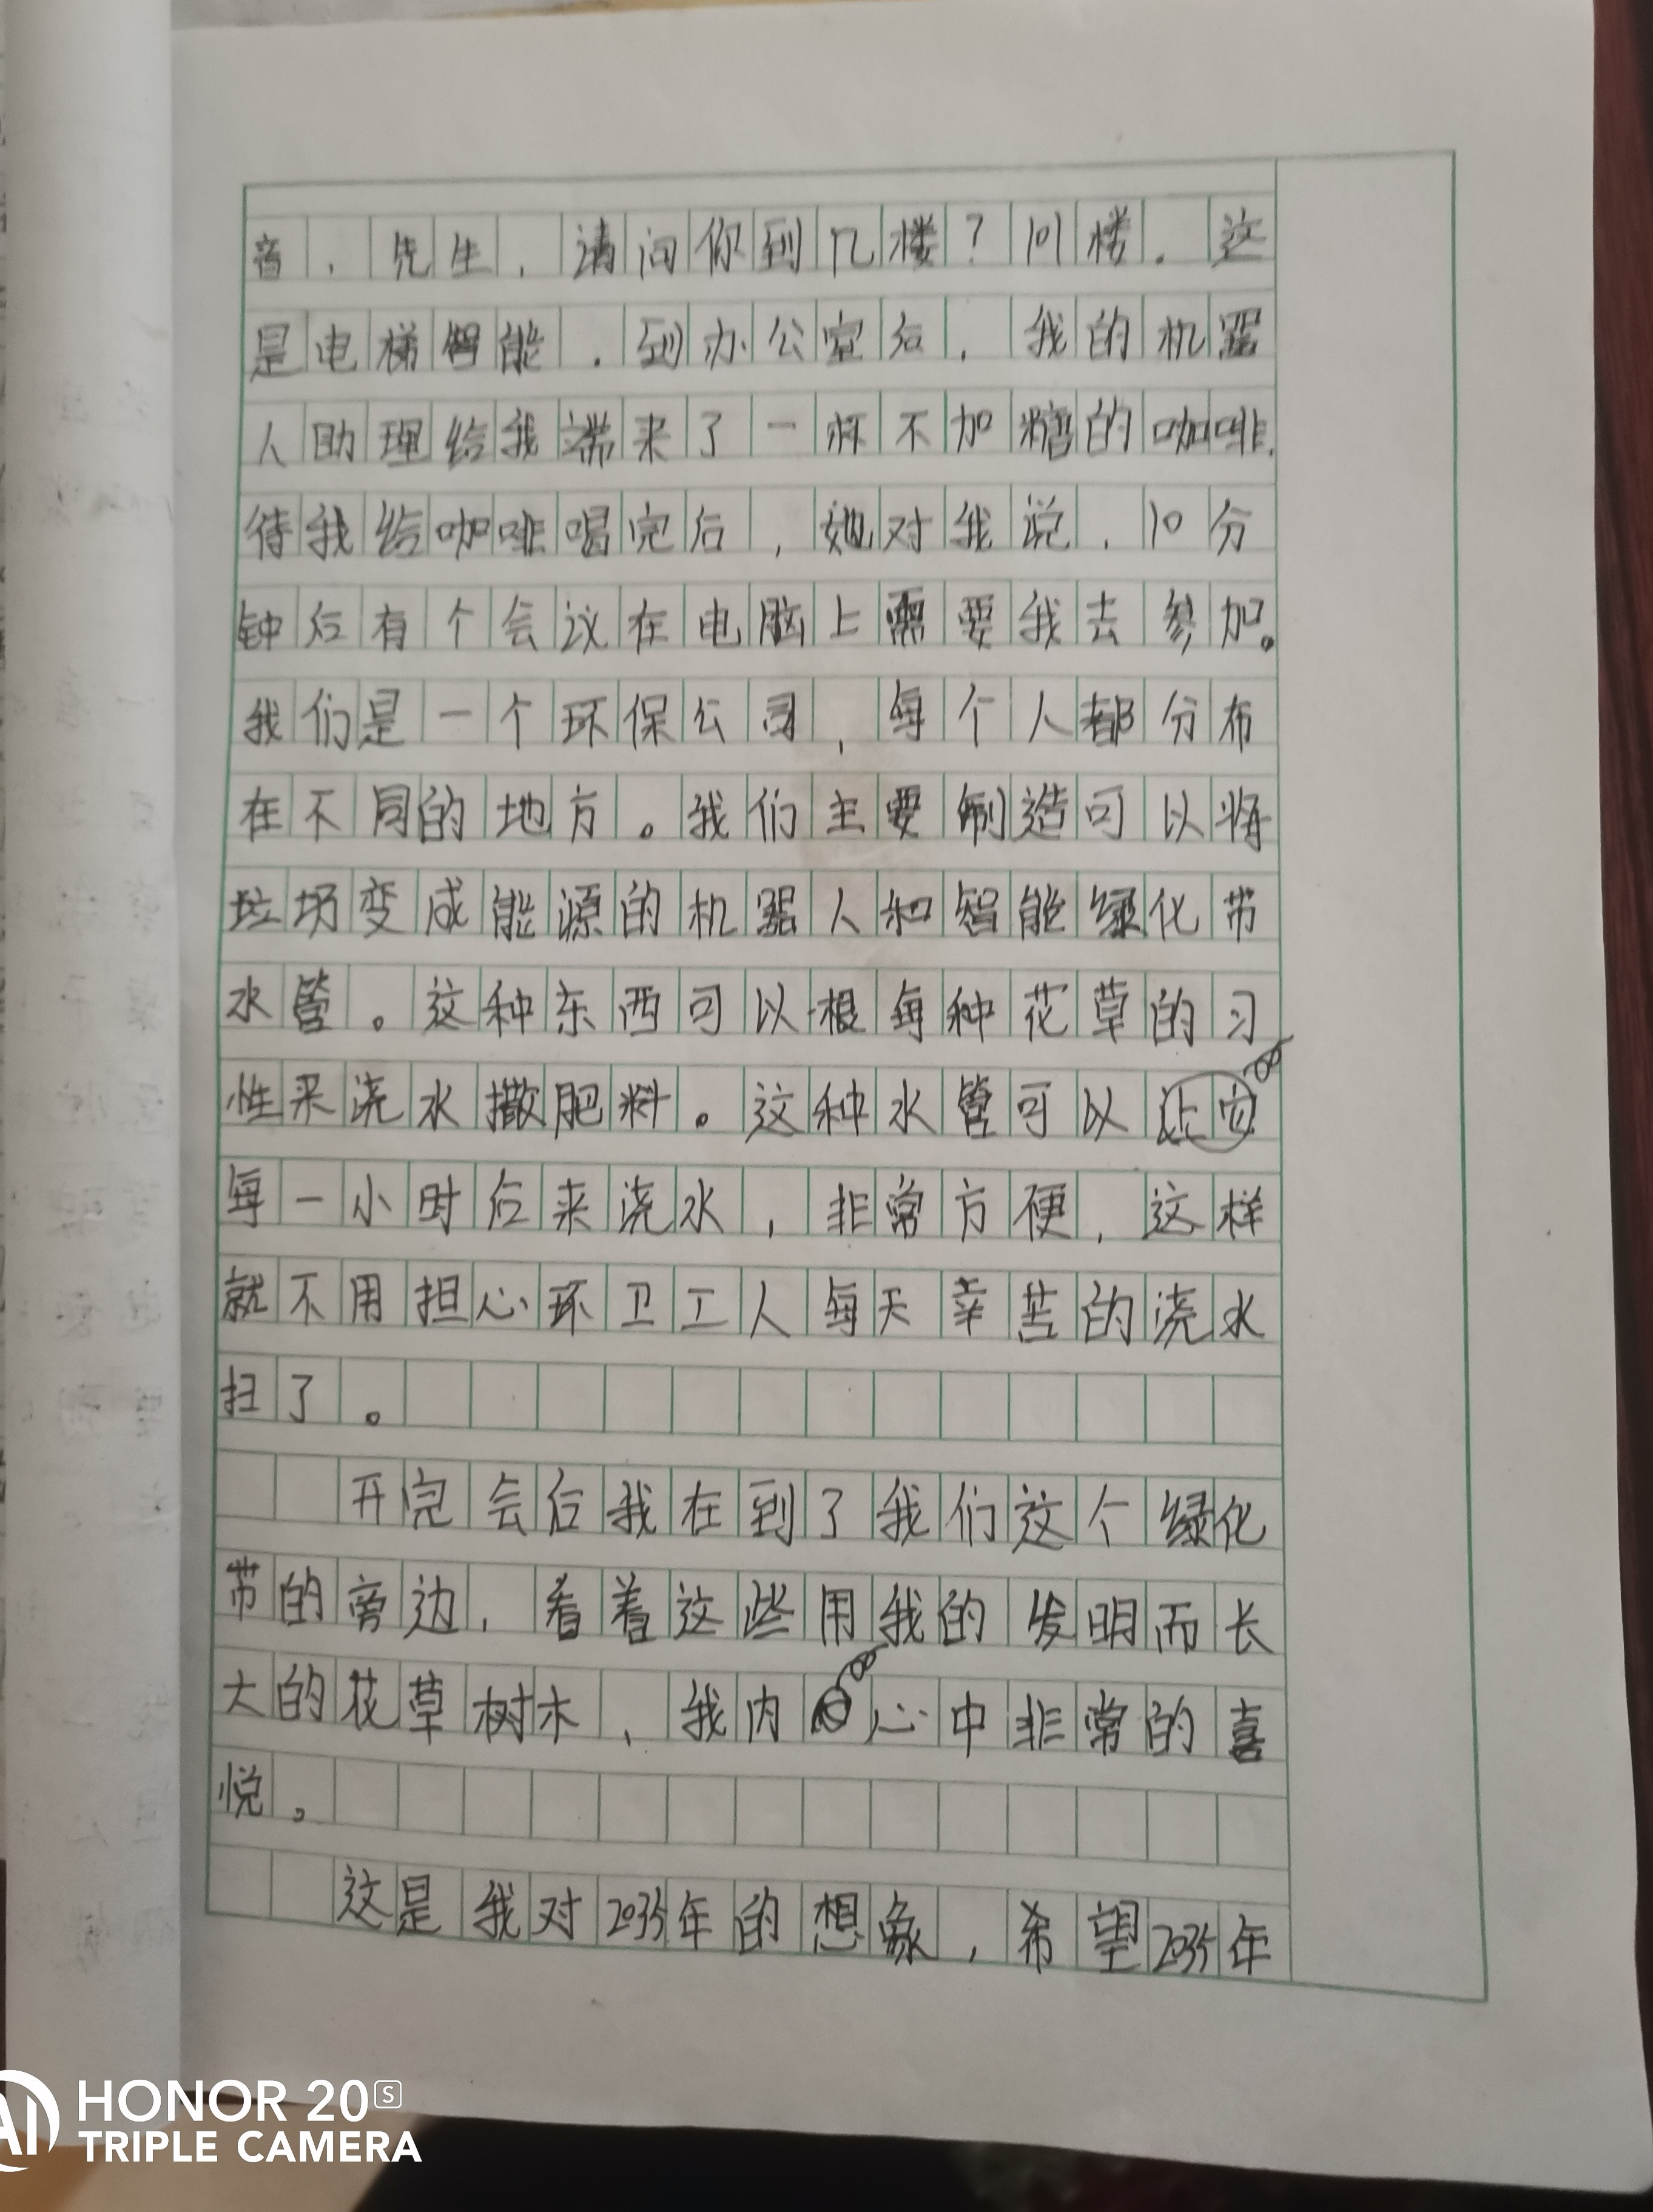 音，先生，请问你到几楼？101楼．这
是电梯智能．到办公室后，我的机器
人助理给我端来了一杯不加糖的咖啡．
待我给咖啡喝完后，她对我说，10分
钟后有个会议在电脑上需要我去参加。
我们是一个环保公司，每个人都分布
在不同的地方。我们主要制造可以将
垃圾变成能源的机器人和智能绿化带
水管。这种东西可以根每种花草的习
性来浇水撒肥料。这种水管可以
每一小时后来浇水，非常方便，这样
就不用担心环卫工人每天辛苦的浇水
扫了。
开完会后我在到了我们这个绿化
带的旁边，看着这些用我的发明而长
大的花草树木，我内心中非常的喜
悦。
这是我对2035年的想象，希望2035年
HONOR 20S
TRIPLE CAMERA